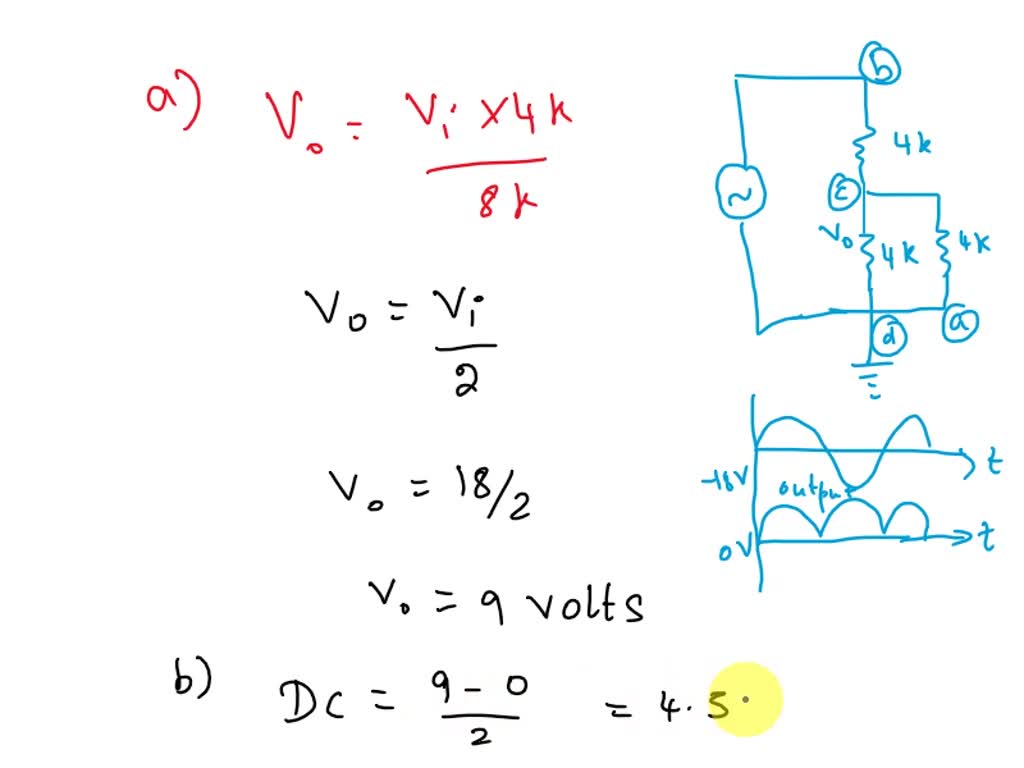 a) Vo = Vi × 4k
8k
Vo = Vi
2
Vo = 18/2
Vo = 9 volts
b) DC = 9 - 0 = 4.5
2
b
4k
c
Vo 4k 4k
d a
-18V t
output
0V t